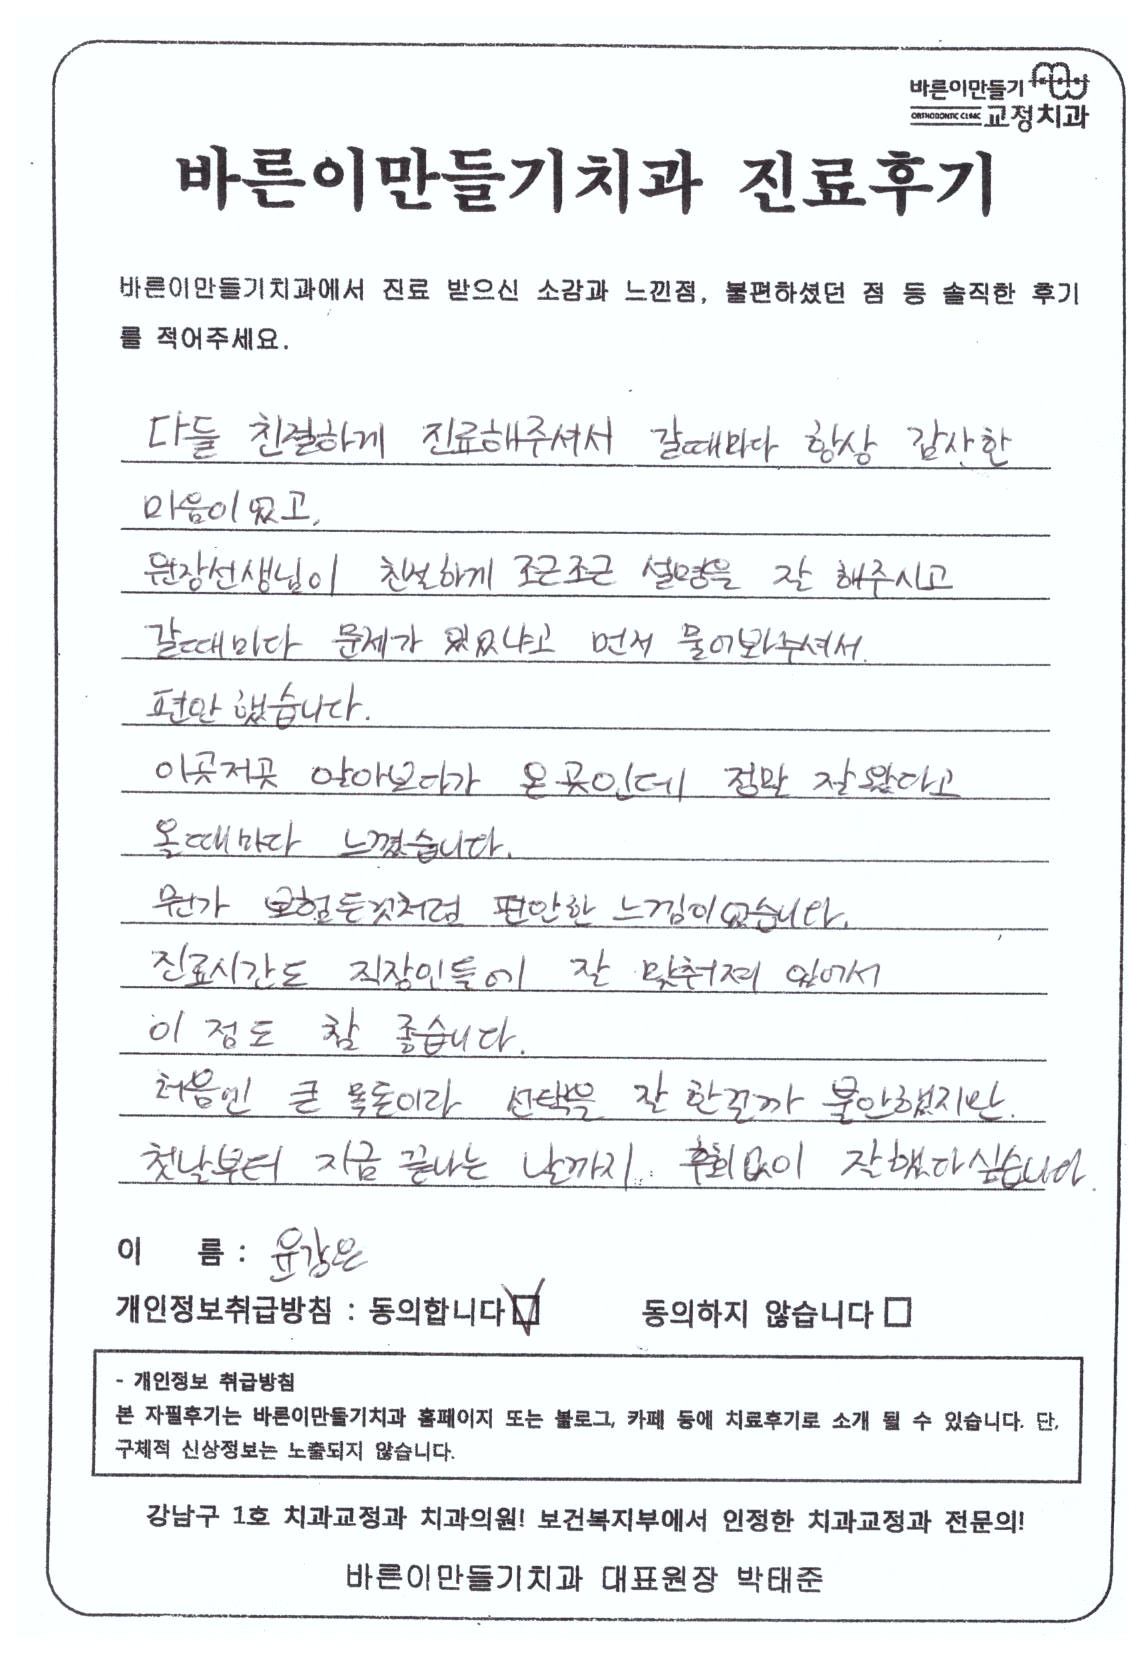 바른이만들기
ORTHODONTIC CLINIC 교정치과
바른이만들기치과 진료후기
바른이만들기치과에서 진료 받으신 소감과 느낀점, 불편하셨던 점 등 솔직한 후기
를 적어주세요.
다들 친절하게 진료해주셔서 갈때마다 항상 감사한
마음이 있고,
원장선생님이 친절하게 조근조근 설명을 잘 해주시고
갈때마다 문제가 있었냐고 먼저 물어봐주셔서
편안했습니다.
이곳저곳 알아보다가 온 곳인데 정말 잘 왔다고
올때마다 느꼈습니다.
뭔가 보험든것처럼 편안한 느낌이었습니다.
진료시간도 직장인들에 잘 맞춰져 있어서
이 점도 참 좋습니다.
처음엔 큰 목돈이라 선택을 잘 한걸까 불안했지만.
첫날부터 지금 끝나는 날까지.. 후회없이 잘했다싶습니다.
이 름 : 윤강은
개인정보취급방침 : 동의합니다 동의하지 않습니다
- 개인정보 취급방침
본 자필후기는 바른이만들기치과 홈페이지 또는 블로그, 카페 등에 치료후기로 소개 될 수 있습니다. 단,
구체적 신상정보는 노출되지 않습니다.
강남구 1호 치과교정과 치과의원! 보건복지부에서 인정한 치과교정과 전문의!
바른이만들기치과 대표원장 박태준